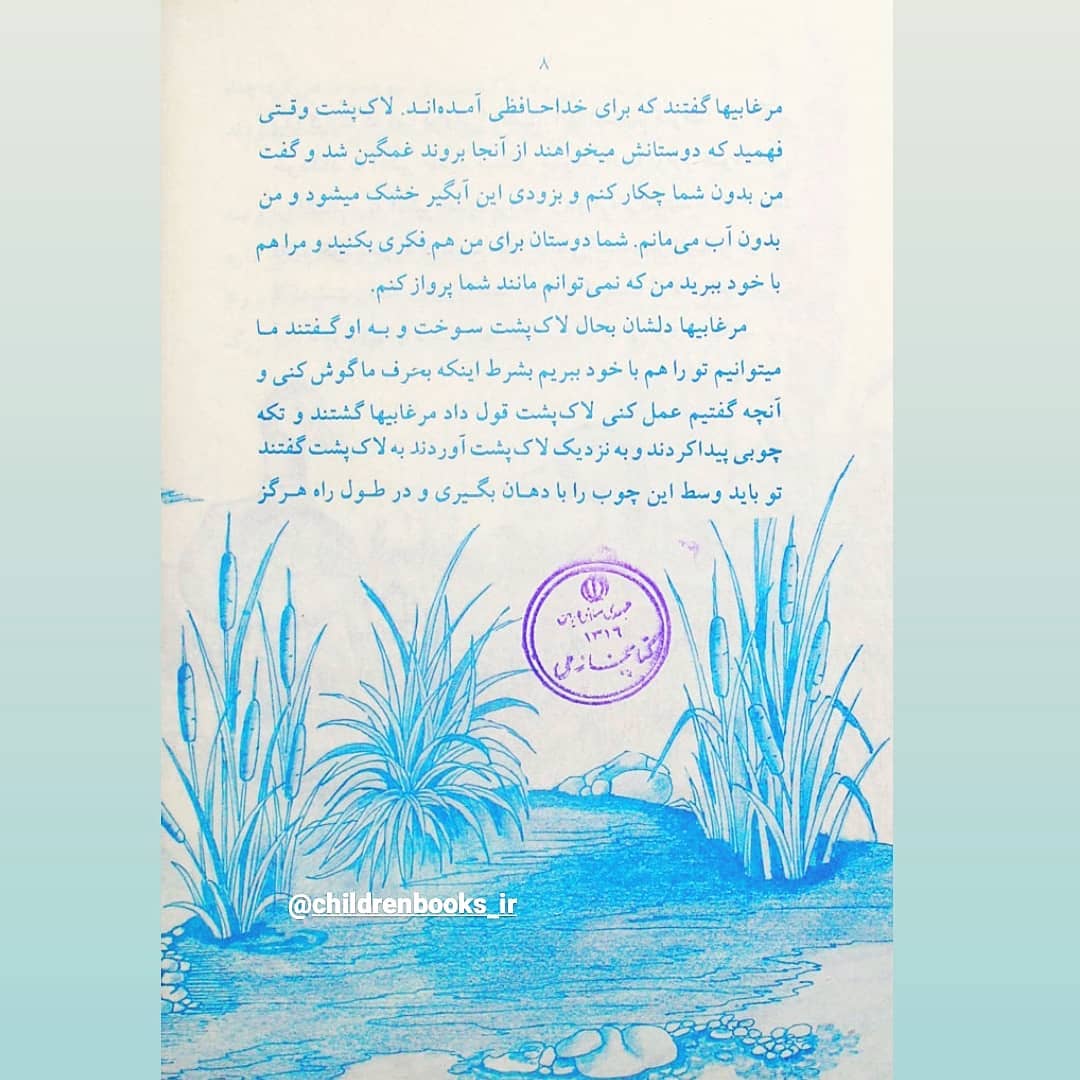 ۸
مرغابیها گفتند که برای خداحافظی آمده‌اند. لاک‌پشت وقتی
فهمید که دوستانش میخواهند از آنجا بروند غمگین شد و گفت
من بدون شما چکار کنم و بزودی این آبگیر خشک میشود و من
بدون آب می‌مانم. شما دوستان برای من هم فکری بکنید و مرا هم
با خود ببرید من که نمی‌توانم مانند شما پرواز کنم.
مرغابیها دلشان بحال لاک‌پشت سوخت و به او گفتند ما
میتوانیم تو را هم با خود ببریم بشرط اینکه بحرف ما گوش کنی و
آنچه گفتیم عمل کنی لاک‌پشت قول داد مرغابیها گشتند و تکه
چوبی پیدا کردند و به نزدیک لاک‌پشت آوردند به لاک‌پشت گفتند
تو باید وسط این چوب را با دهان بگیری و در طول راه هرگز
جمهوری اسلامی ایران
۱۳۱۶
کتابخانه ملی
@childrenbooks_ir